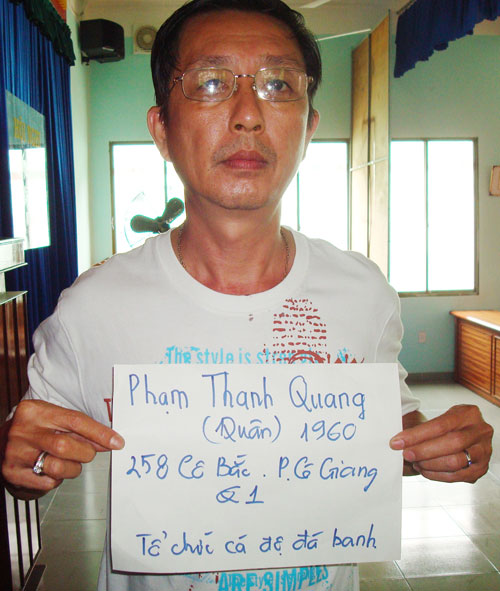 The style is s
Phạm Thanh Quang
(Quân) 1960
258 Cô Bắc . P. Cô Giang
Q1
Tổ chức cá độ đá banh
ARE SIMPLES